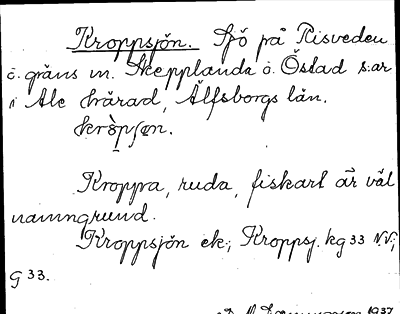 Kroppsjön. Sjö på Risveden
o. gräns m. Skepplanda o. Östad s:ar
i Ale härad, Älfsborgs län.
Kroppa, ruda, fiskart är väl
namngrund.
Kroppsjön ek.; Kroppsj. kg 33 NV;
G 33.
1937